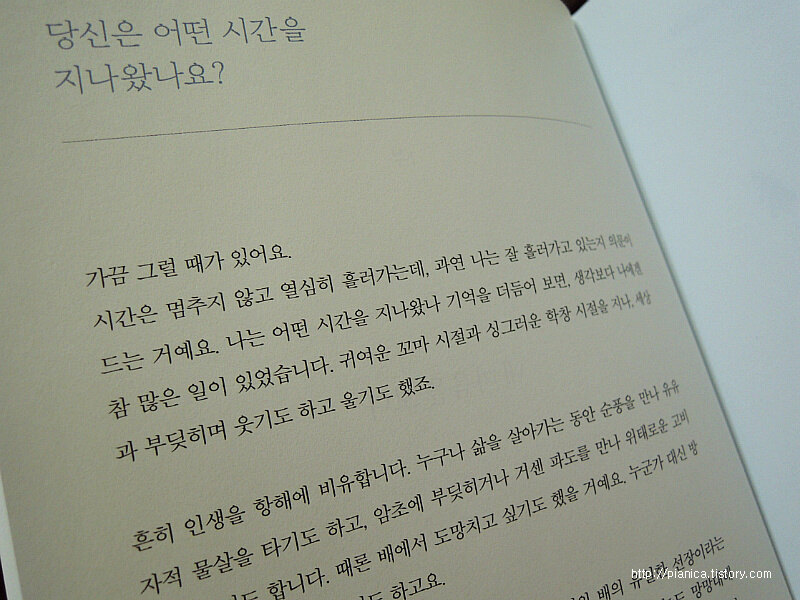 당신은 어떤 시간을
지나왔나요?
가끔 그럴 때가 있어요.
시간은 멈추지 않고 열심히 흘러가는데, 과연 나는 잘 흘러가고 있는지 의문이
드는 거예요. 나는 어떤 시간을 지나왔나 기억을 더듬어 보면, 생각보다 나에겐
참 많은 일이 있었습니다. 귀여운 꼬마 시절과 싱그러운 학창 시절을 지나, 세상
과 부딪히며 웃기도 하고 울기도 했죠.
흔히 인생을 항해에 비유합니다. 누구나 삶을 살아가는 동안 순풍을 만나 유유
자적 물살을 타기도 하고, 암초에 부딪히거나 거센 파도를 만나 위태로운 고비
합니다. 때론 배에서 도망치고 싶기도 했을 거예요. 누군가 대신 방
하고요.
배의 유일한 선장이라는
http://pianica.tistory.com